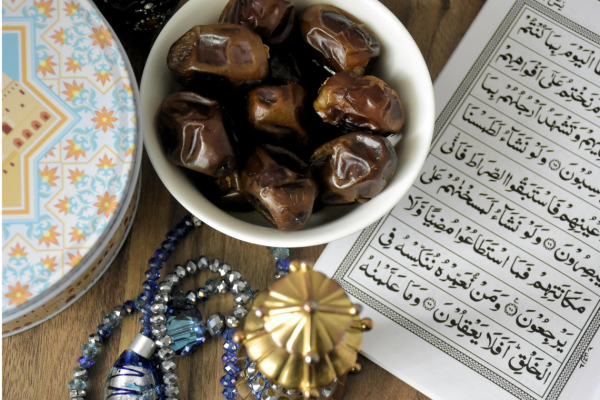 الْيَوْمَ بِمَا كُنْتُمْ
نَخْتِمُ عَلٰٓى اَفْوَاهِهِمْ
وَتَشْهَدُ اَرْجُلُهُمْ بِمَا
وَلَوْ نَشَآءُ لَطَمَسْنَا
فَاسْتَبَقُوا الصِّرَاطَ فَاَنّٰى
يُبْصِرُوْنَ ۝ وَلَوْ نَشَآءُ لَمَسَخْنٰهُمْ عَلٰى
مَكَانَتِهِمْ فَمَا اسْتَطَاعُوْا مُضِيًّا وَّلَا
يَرْجِعُوْنَ ۝ وَمَنْ نُّعَمِّرْهُ نُنَكِّسْهُ فِى
الْخَلْقِ ؕ اَفَلَا يَعْقِلُوْنَ ۝ وَمَا عَلَّمْنٰهُ